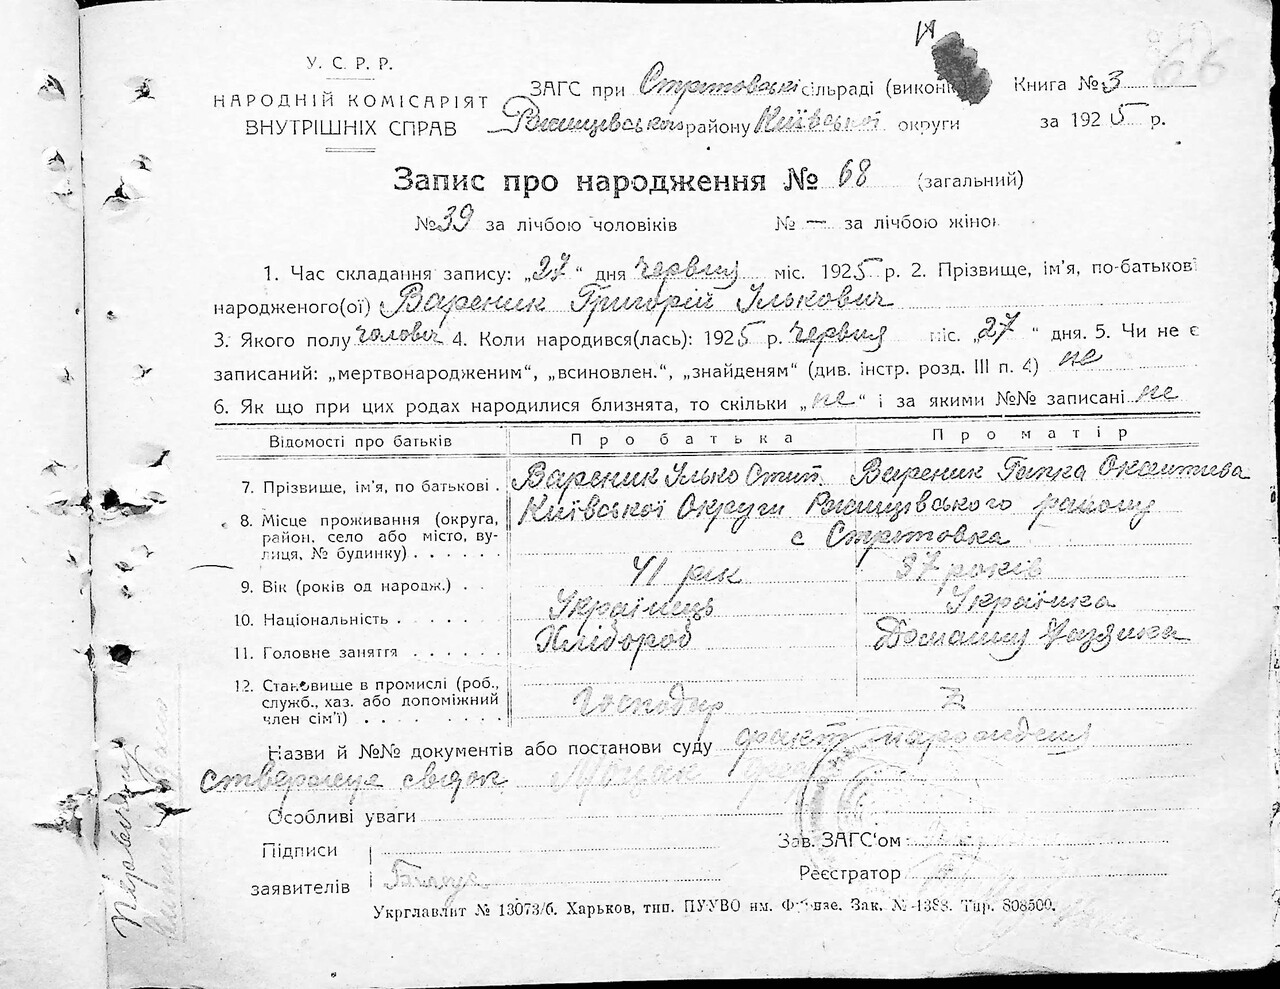 У. С. Р. Р.
НАРОДНІЙ КОМІСАРІЯТ
ВНУТРІШНІХ СПРАВ
ЗАГС при Стритовські сільраді (викон
Ржищевського району Київської округи
Книга № 3
за 1925 р.
66
Запис про народження № 68 (загальний)
№ 39 за лічбою чоловіків № — за лічбою жінок
1. Час складання запису: „27“ дня червня міс. 1925 р. 2. Прізвище, ім'я, по-батькові
народженого(ої) Вареник Григорій Ількович
3. Якого полу чолович 4. Коли народився(лась): 1925 р. червня міс. „27“ дня. 5. Чи не є
записаний: „мертвонародженим“, „всиновлен.“, „знайденям“ (див. інстр. розд. III п. 4) не
6. Як що при цих родах народилися близнята, то скільки „не“ і за якими №№ записані не
Відомості про батьків Про батька Про матір
7. Прізвище, ім'я, по батькові . Вареник Ілько Вареник Гапка
8. Місце проживання (округа, район, село або місто, вулиця, № будинку) . . . . . . Київської Округи Ржищівського району
с Стритовка
9. Вік (років од народж.) . . 41 рік 37 років
10. Національність . . . . . . Українець Українка
11. Головне заняття . . . . . . Хлібороб Домашну
12. Становище в промислі (роб., служб., хаз. або допоміжний член сім'ї) . . . . . . . . Господар
Назви й №№ документів або постанови суду факт народження
ствержує свідок
Особливі уваги
Підписи
заявителів
Зав. ЗАГС'ом
Реєстратор
Укрглавліт № 13073/6. Харьков, тип. ПУУВО им. Фрунзе. Зак. № 1388. Тир. 808500.